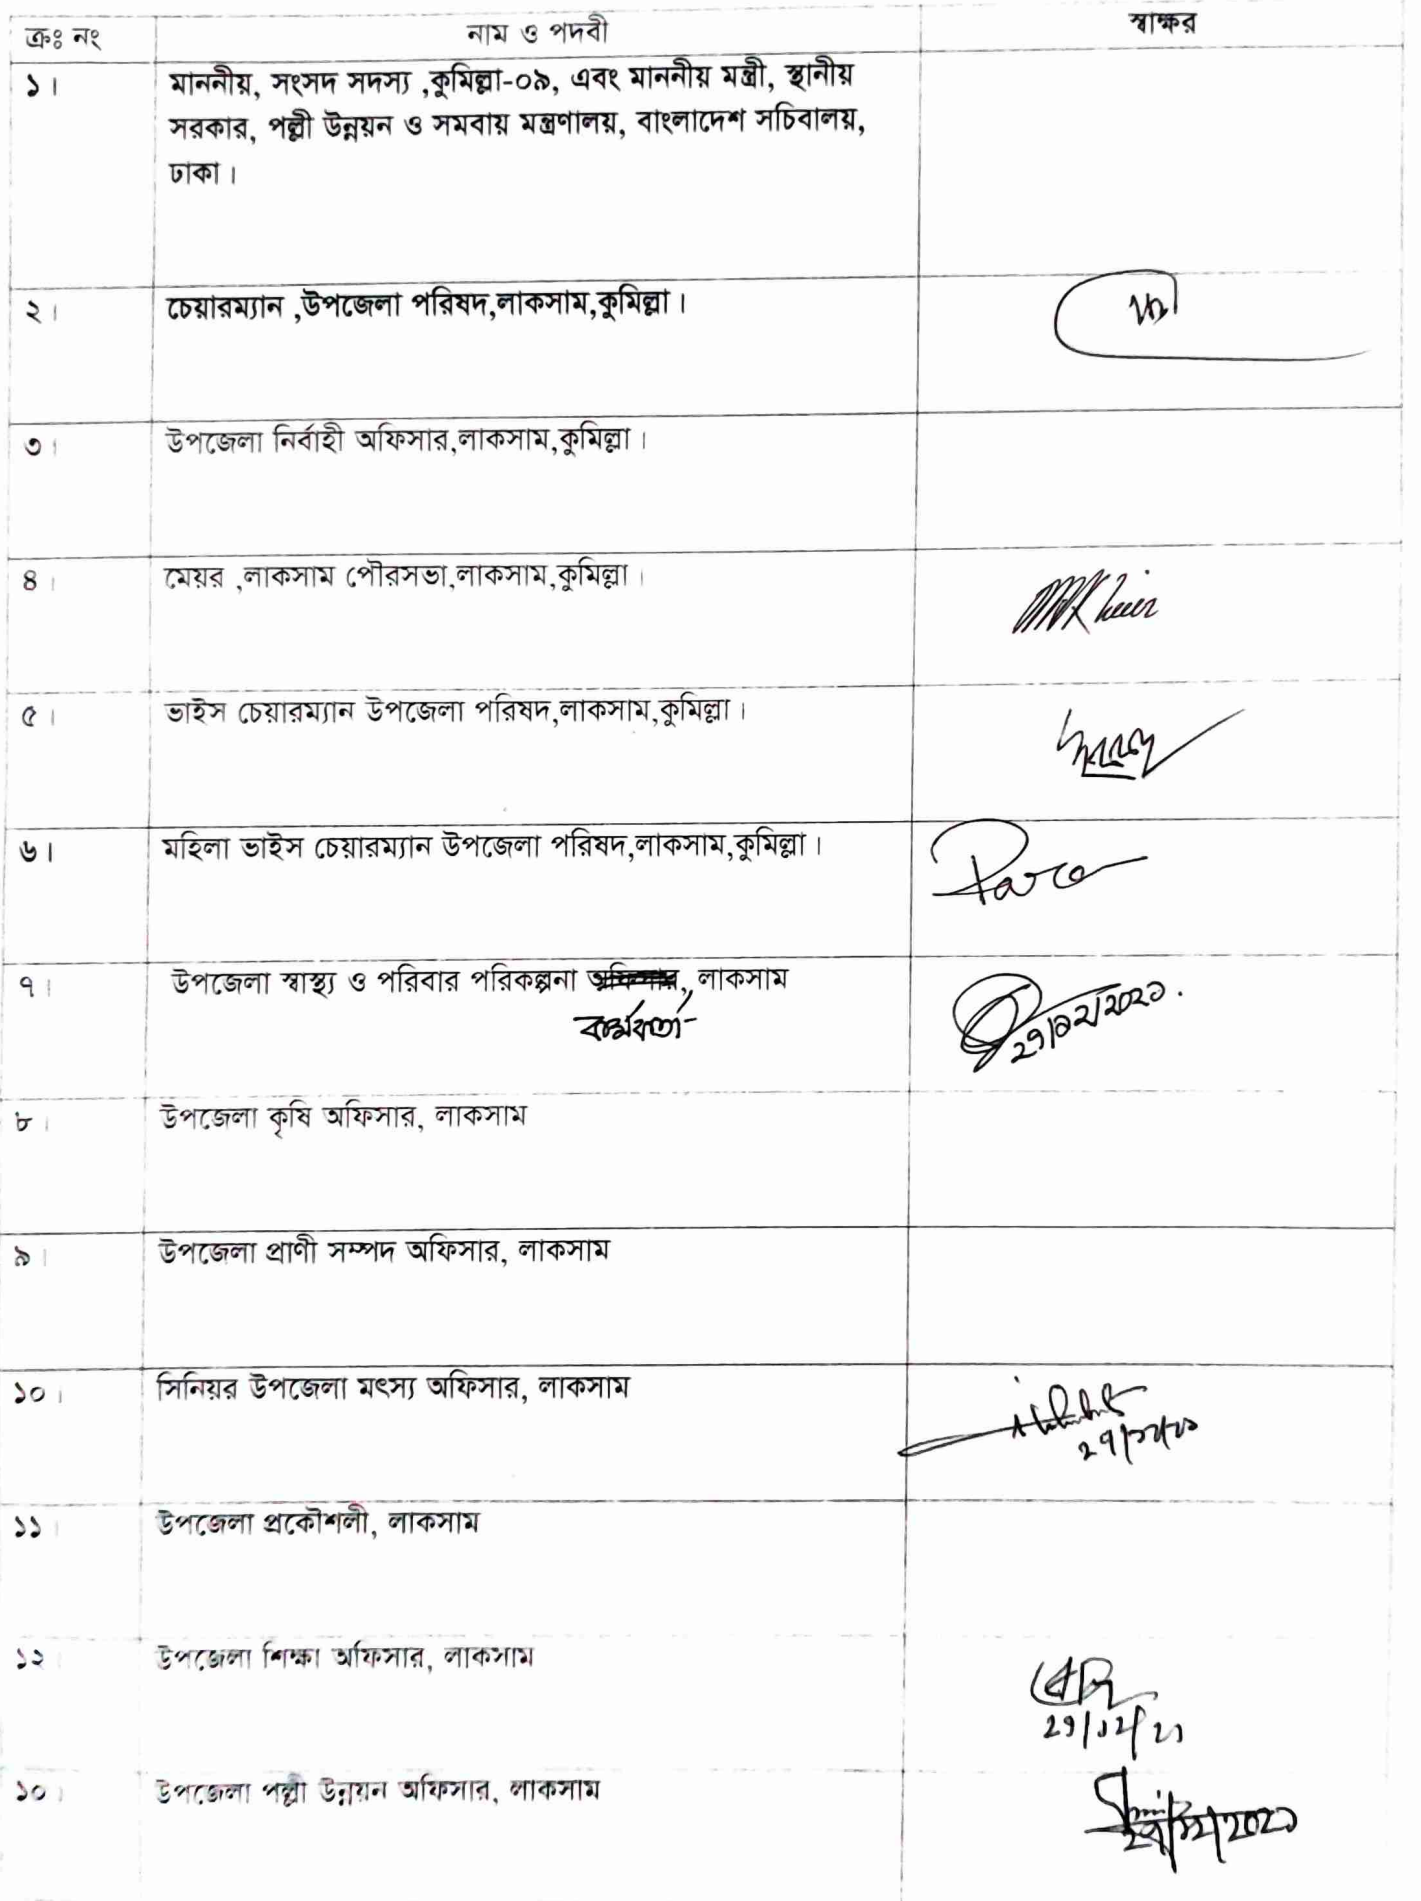 ক্রঃ নং নাম ও পদবী স্বাক্ষর
১। মাননীয়, সংসদ সদস্য ,কুমিল্লা-০৯, এবং মাননীয় মন্ত্রী, স্থানীয়
সরকার, পল্লী উন্নয়ন ও সমবায় মন্ত্রণালয়, বাংলাদেশ সচিবালয়,
ঢাকা।
২। চেয়ারম্যান ,উপজেলা পরিষদ,লাকসাম,কুমিল্লা।
৩। উপজেলা নির্বাহী অফিসার,লাকসাম,কুমিল্লা।
৪। মেয়র ,লাকসাম পৌরসভা,লাকসাম,কুমিল্লা।
৫। ভাইস চেয়ারম্যান উপজেলা পরিষদ,লাকসাম,কুমিল্লা।
৬। মহিলা ভাইস চেয়ারম্যান উপজেলা পরিষদ,লাকসাম,কুমিল্লা।
৭। উপজেলা স্বাস্থ্য ও পরিবার পরিকল্পনা অফিসার, লাকসাম
কর্মকর্তা
২৭/১২/২০২১.
৮। উপজেলা কৃষি অফিসার, লাকসাম
৯। উপজেলা প্রাণী সম্পদ অফিসার, লাকসাম
১০। সিনিয়র উপজেলা মৎস্য অফিসার, লাকসাম
২৭/১২/২১
১১। উপজেলা প্রকৌশলী, লাকসাম
১২। উপজেলা শিক্ষা অফিসার, লাকসাম
২৭/১২/২১
১৩। উপজেলা পল্লী উন্নয়ন অফিসার, লাকসাম
২৭/১২/২০২১